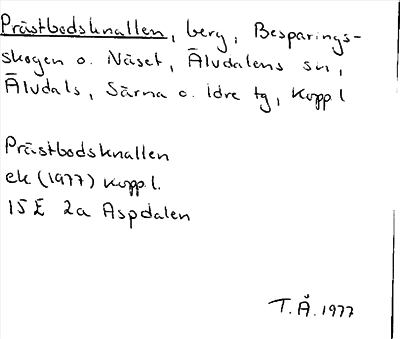 Prästbodsknallen, berg, Besparings-
skogen o. Näset, Älvdalens sn,
Älvdals, Särna o. Idre tg, Kopp l
Prästbodsknallen
ek (1977) Kopp l.
15 E 2a Aspdalen
T. Å. 1977